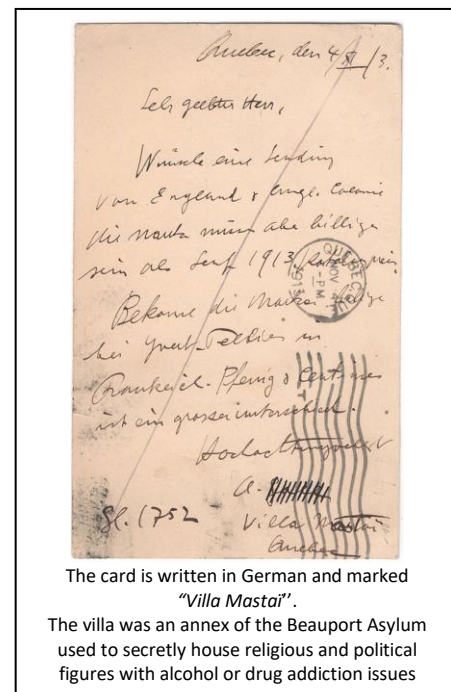 Quebec, den 4/XI/3.
Sehr geehrter Herr,
Wünsche eine Sendung
von England & Engl. Colonie
die Marken müssen aber billiger
sein als Senf 1913
QUEBEC, QUE
NOV 4
-PM
1913
Bekomme die Marken
bei Yvert-Tellier in
Frankreich. Pfenig & Centimes
ist ein grosser unterschied.
Hochachtungsvoll
A.
Gl. 1752
Villa Mastaï
Quebec
The card is written in German and marked
“Villa Mastaï’’.
The villa was an annex of the Beauport Asylum
used to secretly house religious and political
figures with alcohol or drug addiction issues